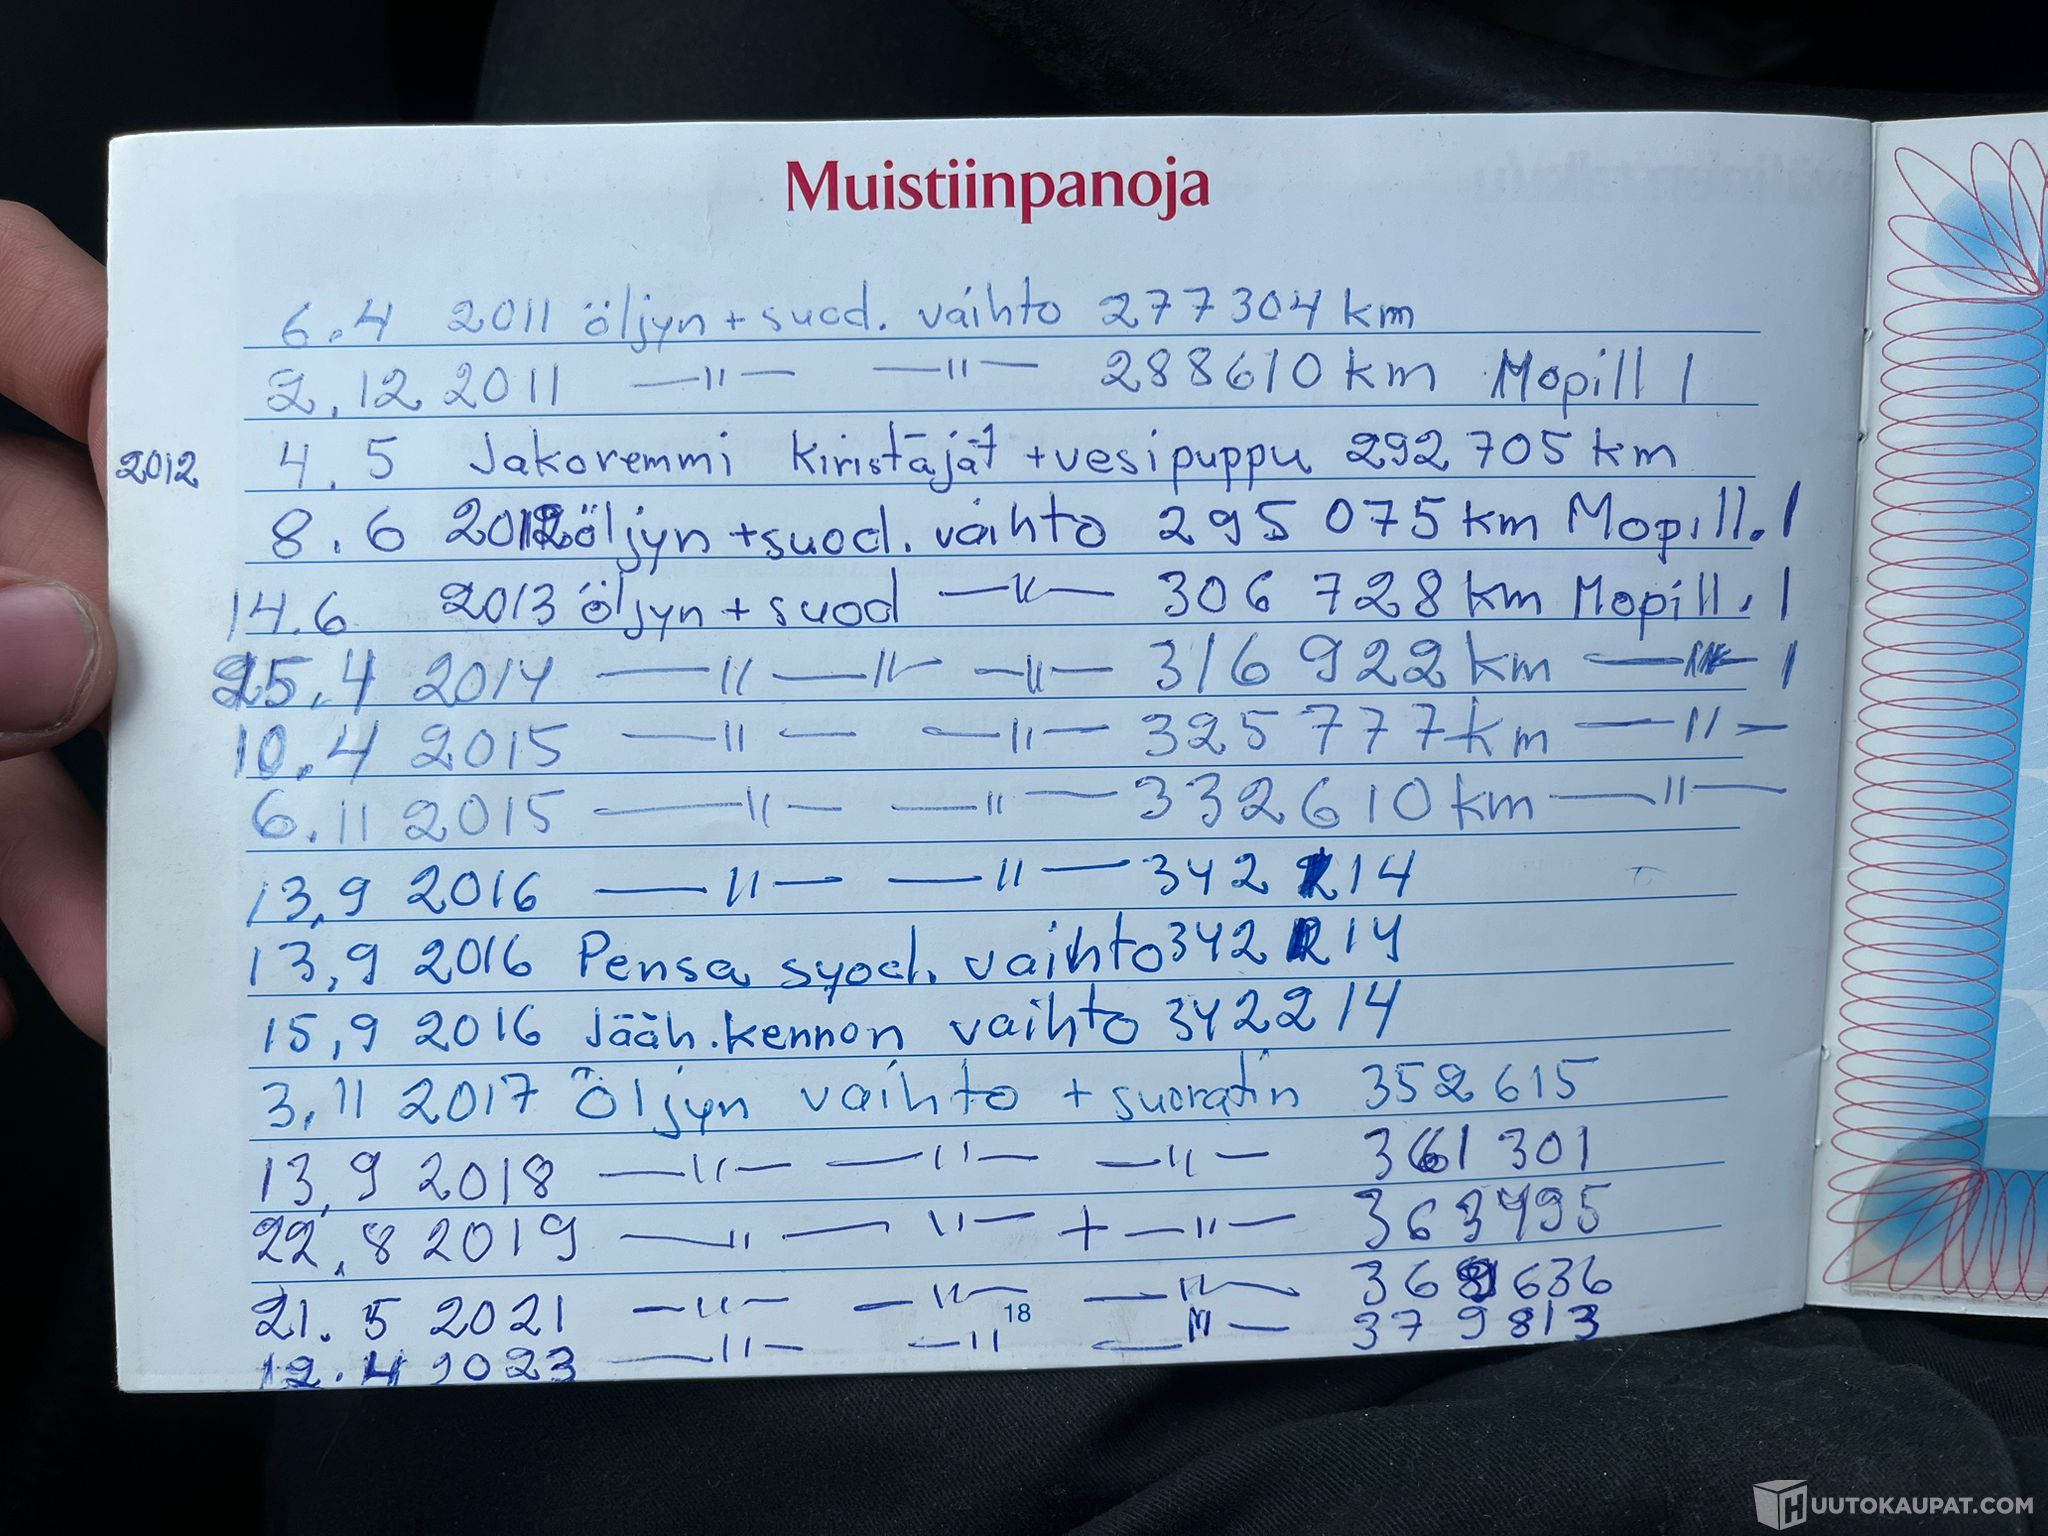 Muistiinpanoja
6.4 2011 öljyn + suod. vaihto 277304 km
2.12 2011 —"— —"— 288610 km Mopill 1
2012 4.5 Jakoremmi kiristäjät + vesipuppu 292 705 km
8.6 2012 öljyn + suod. vaihto 295 075 km Mopill. 1
14.6 2013 öljyn + suod —"— 306 728 km Mopill. 1
25.4 2014 —"— —"— —"— 316 922 km —"— 1
10.4 2015 —"— —"— 325 777 km —"—
6.11 2015 —"— —"— 332610 km —"—
13.9 2016 —"— —"— 342 214
13.9 2016 Pensa syod. vaihto 342 214
15.9 2016 Jääh.kennon vaihto 342214
3.11 2017 Öljyn vaihto + suoratin 352615
13.9 2018 —"— —"— —"— 361 301
22.8 2019 —"— —"— + —"— 363495
21.5 2021 —"— —"— —"— 369636
12.4 2023 —"— —"— —"— 379813
18
HUUTOKAUPAT.COM